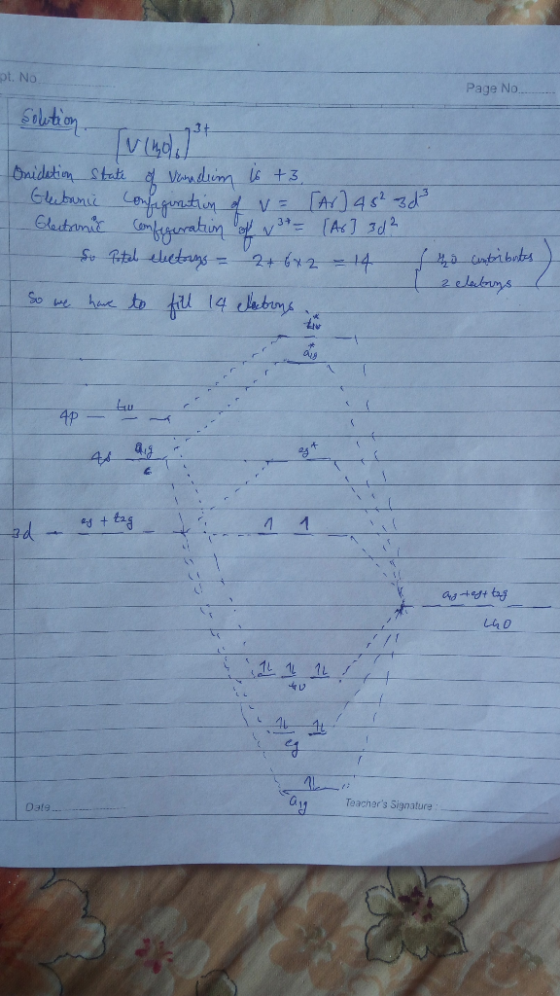 pt. No.
Page No.
Solution.
[V(H2O)6]3+
Oxidation State of Vanadium is +3.
Electronic Configuration of V = [Ar] 4s2 3d3
Electronic configuration of V3+ = [Ar] 3d2
So Total electrons = 2 + 6×2 = 14 { H2O contributes 2 electrons }
So we have to fill 14 electrons.
t1u*
a1g*
4p t1u
4s a1g
eg*
3d eg + t2g 1 1
LGO
1L 1L 1L
t1u
1L 1L
eg
1L
a1g
Date
Teacher's Signature :